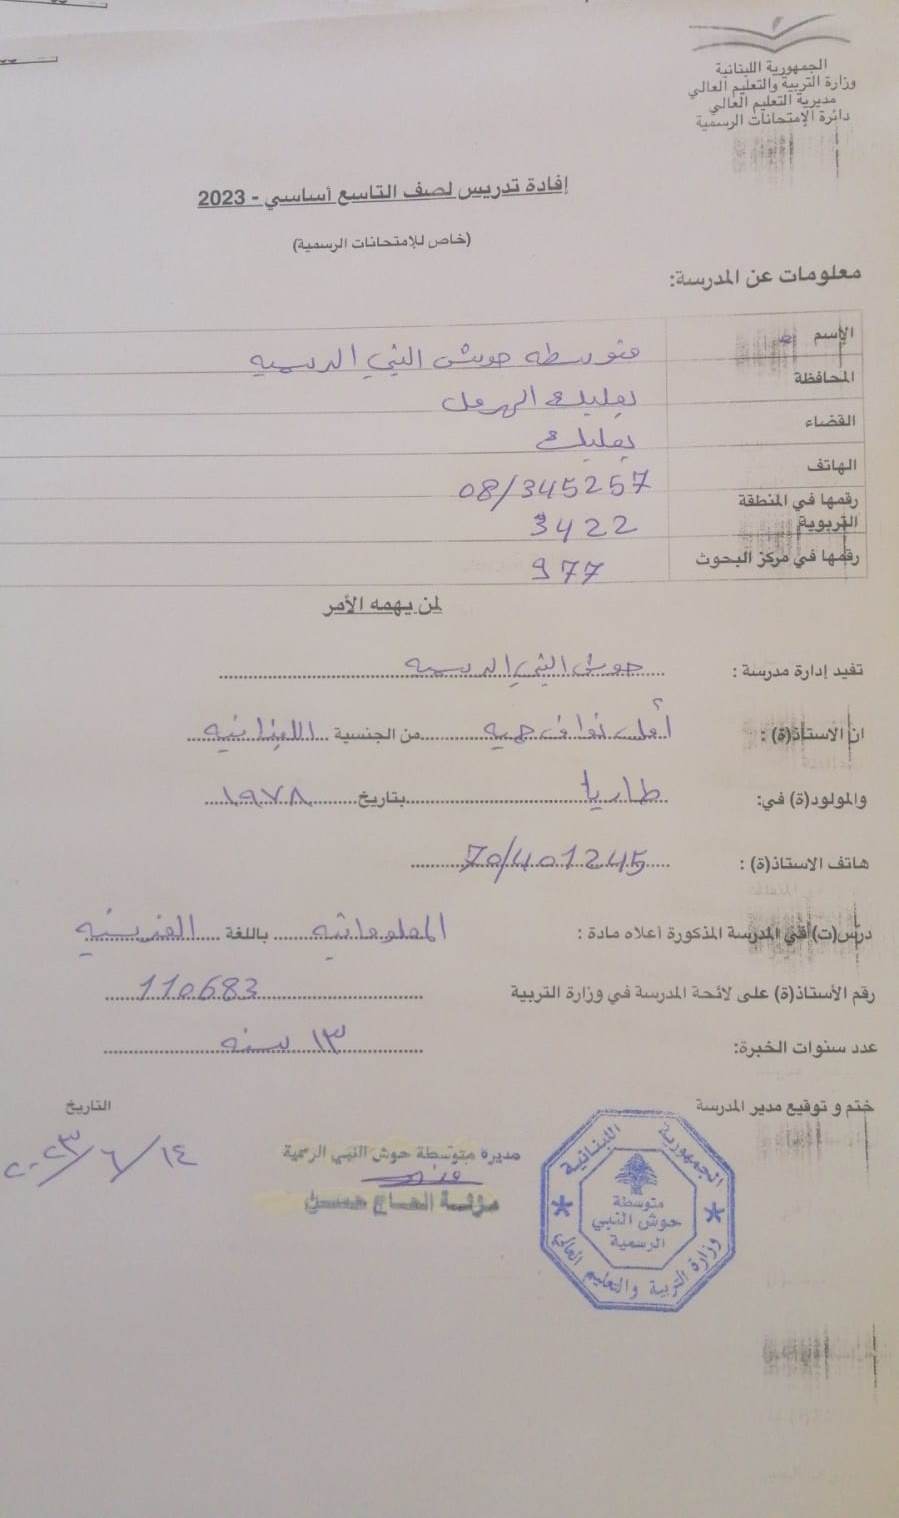 الجمهورية اللبنانية
وزارة التربية والتعليم العالي
مديرية التعليم العالي
دائرة الإمتحانات الرسمية
إفادة تدريس لصف التاسع أساسي - 2023
(خاص للإمتحانات الرسمية)
معلومات عن المدرسة:
الإسم متوسطه حوش النبي الرسميه
المحافظة بعلبك الهرمل
القضاء بعلبك
الهاتف 08/345257
رقمها في المنطقة التربوية 3422
رقمها في مركز البحوث 977
لمن يهمه الأمر
تفيد إدارة مدرسة : حوش النبي الرسميه
ان الاستاذ(ة) : أمل نواف حميه من الجنسية اللبنانيه
والمولود(ة) في: طاريا بتاريخ ١٩٧٨
هاتف الاستاذ(ة) : 70/401245
درّس(ت) في المدرسة المذكورة اعلاه مادة : المعلوماتيه باللغة الفرنسيه
رقم الأستاذ(ة) على لائحة المدرسة في وزارة التربية 110683
عدد سنوات الخبرة: ١٣ سنه
ختم و توقيع مدير المدرسة
التاريخ
١٤/٦/٢٠٢٣
مديرة متوسطة حوش النبي الرسمية
الحاج حسن
الجمهورية اللبنانية
متوسطة
حوش النبي
الرسمية
وزارة التربية والتعليم العالي